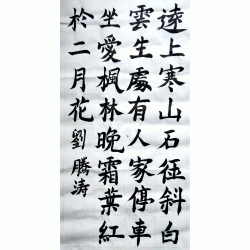 遠上寒山石徑斜白
雲生處有人家停車
坐愛楓林晚霜葉紅
於二月花劉騰涛